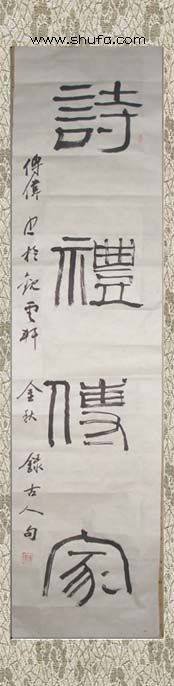 www.shufa.com
詩禮傳家
金秋 錄古人句
傅偉 書於觀雲軒